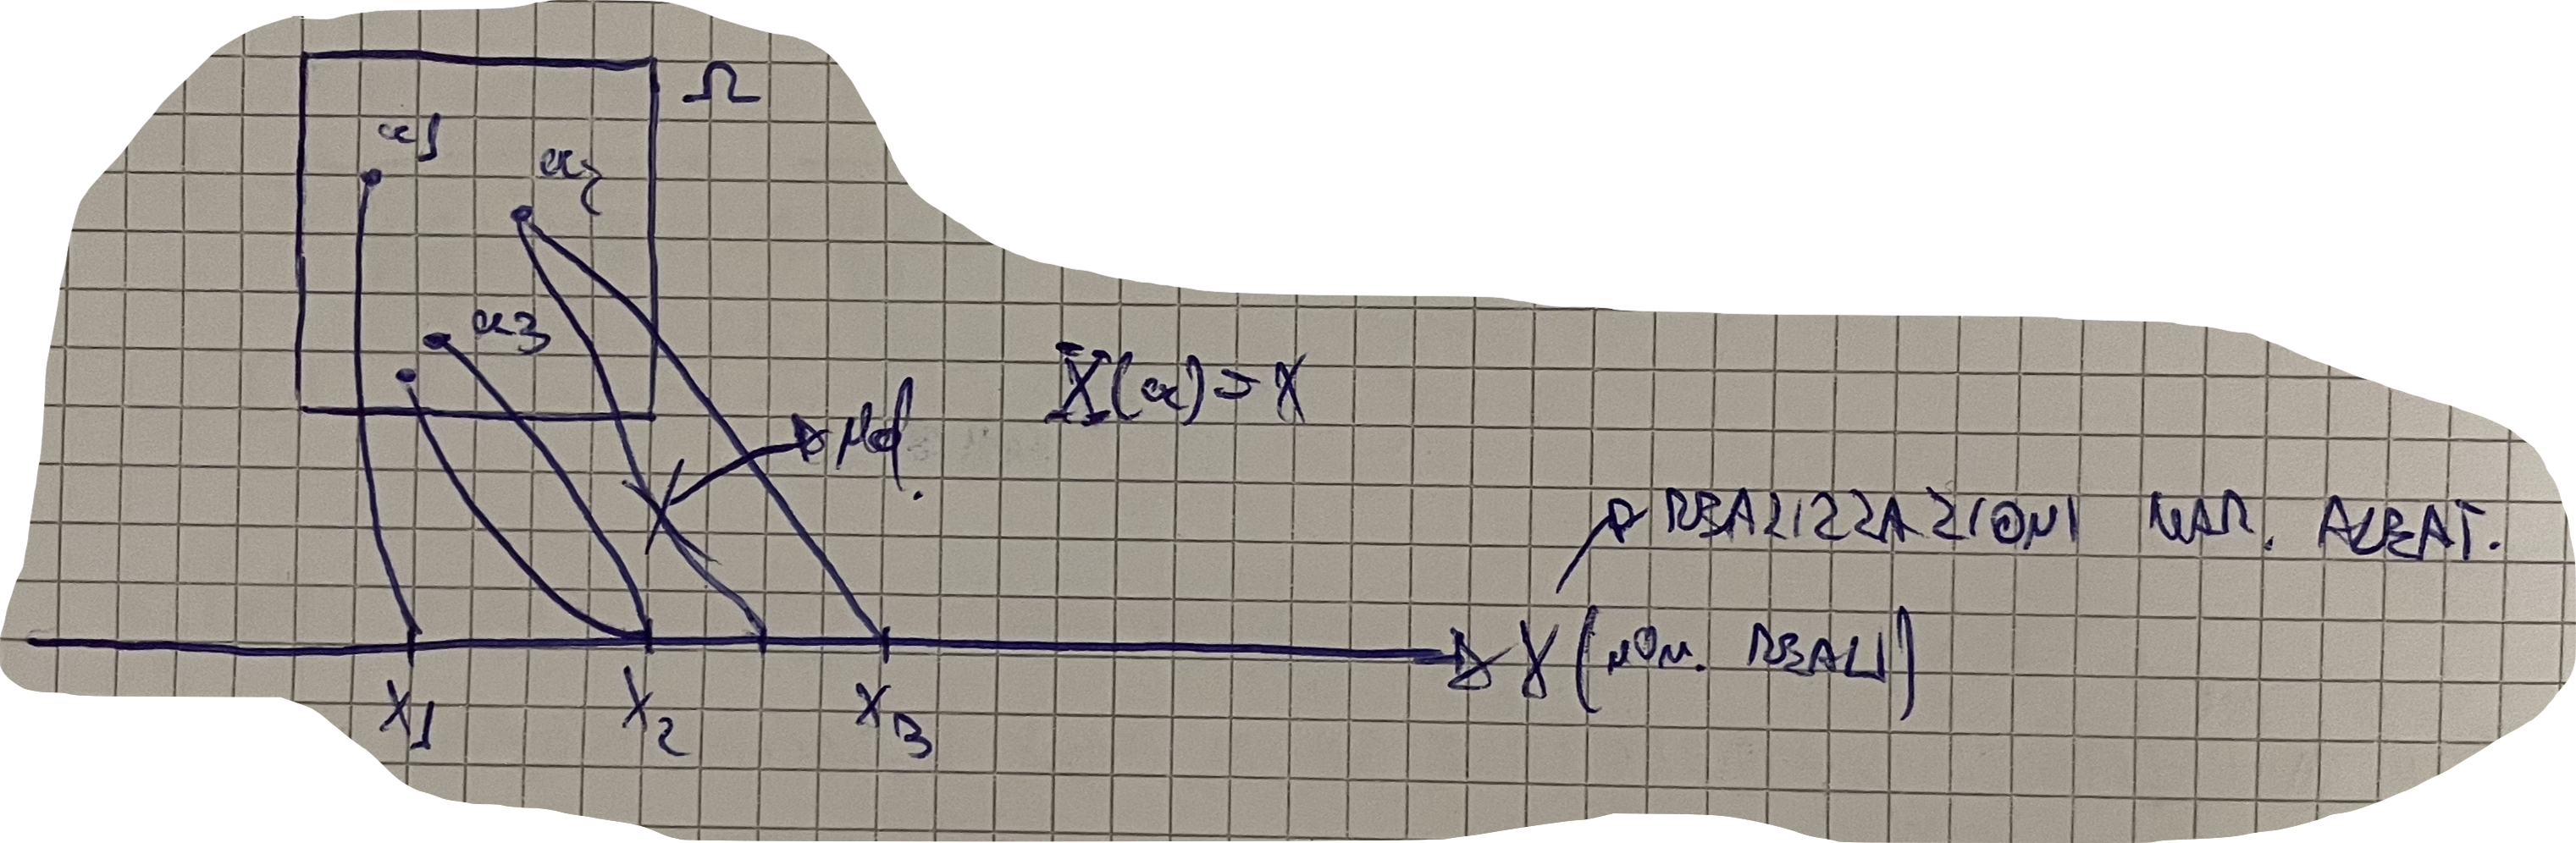 Ω
α1
α2
α3
X(α) = x
No.
REALIZZAZIONI VAR. ALEAT.
x (NUM. REALI)
x1 x2 x3